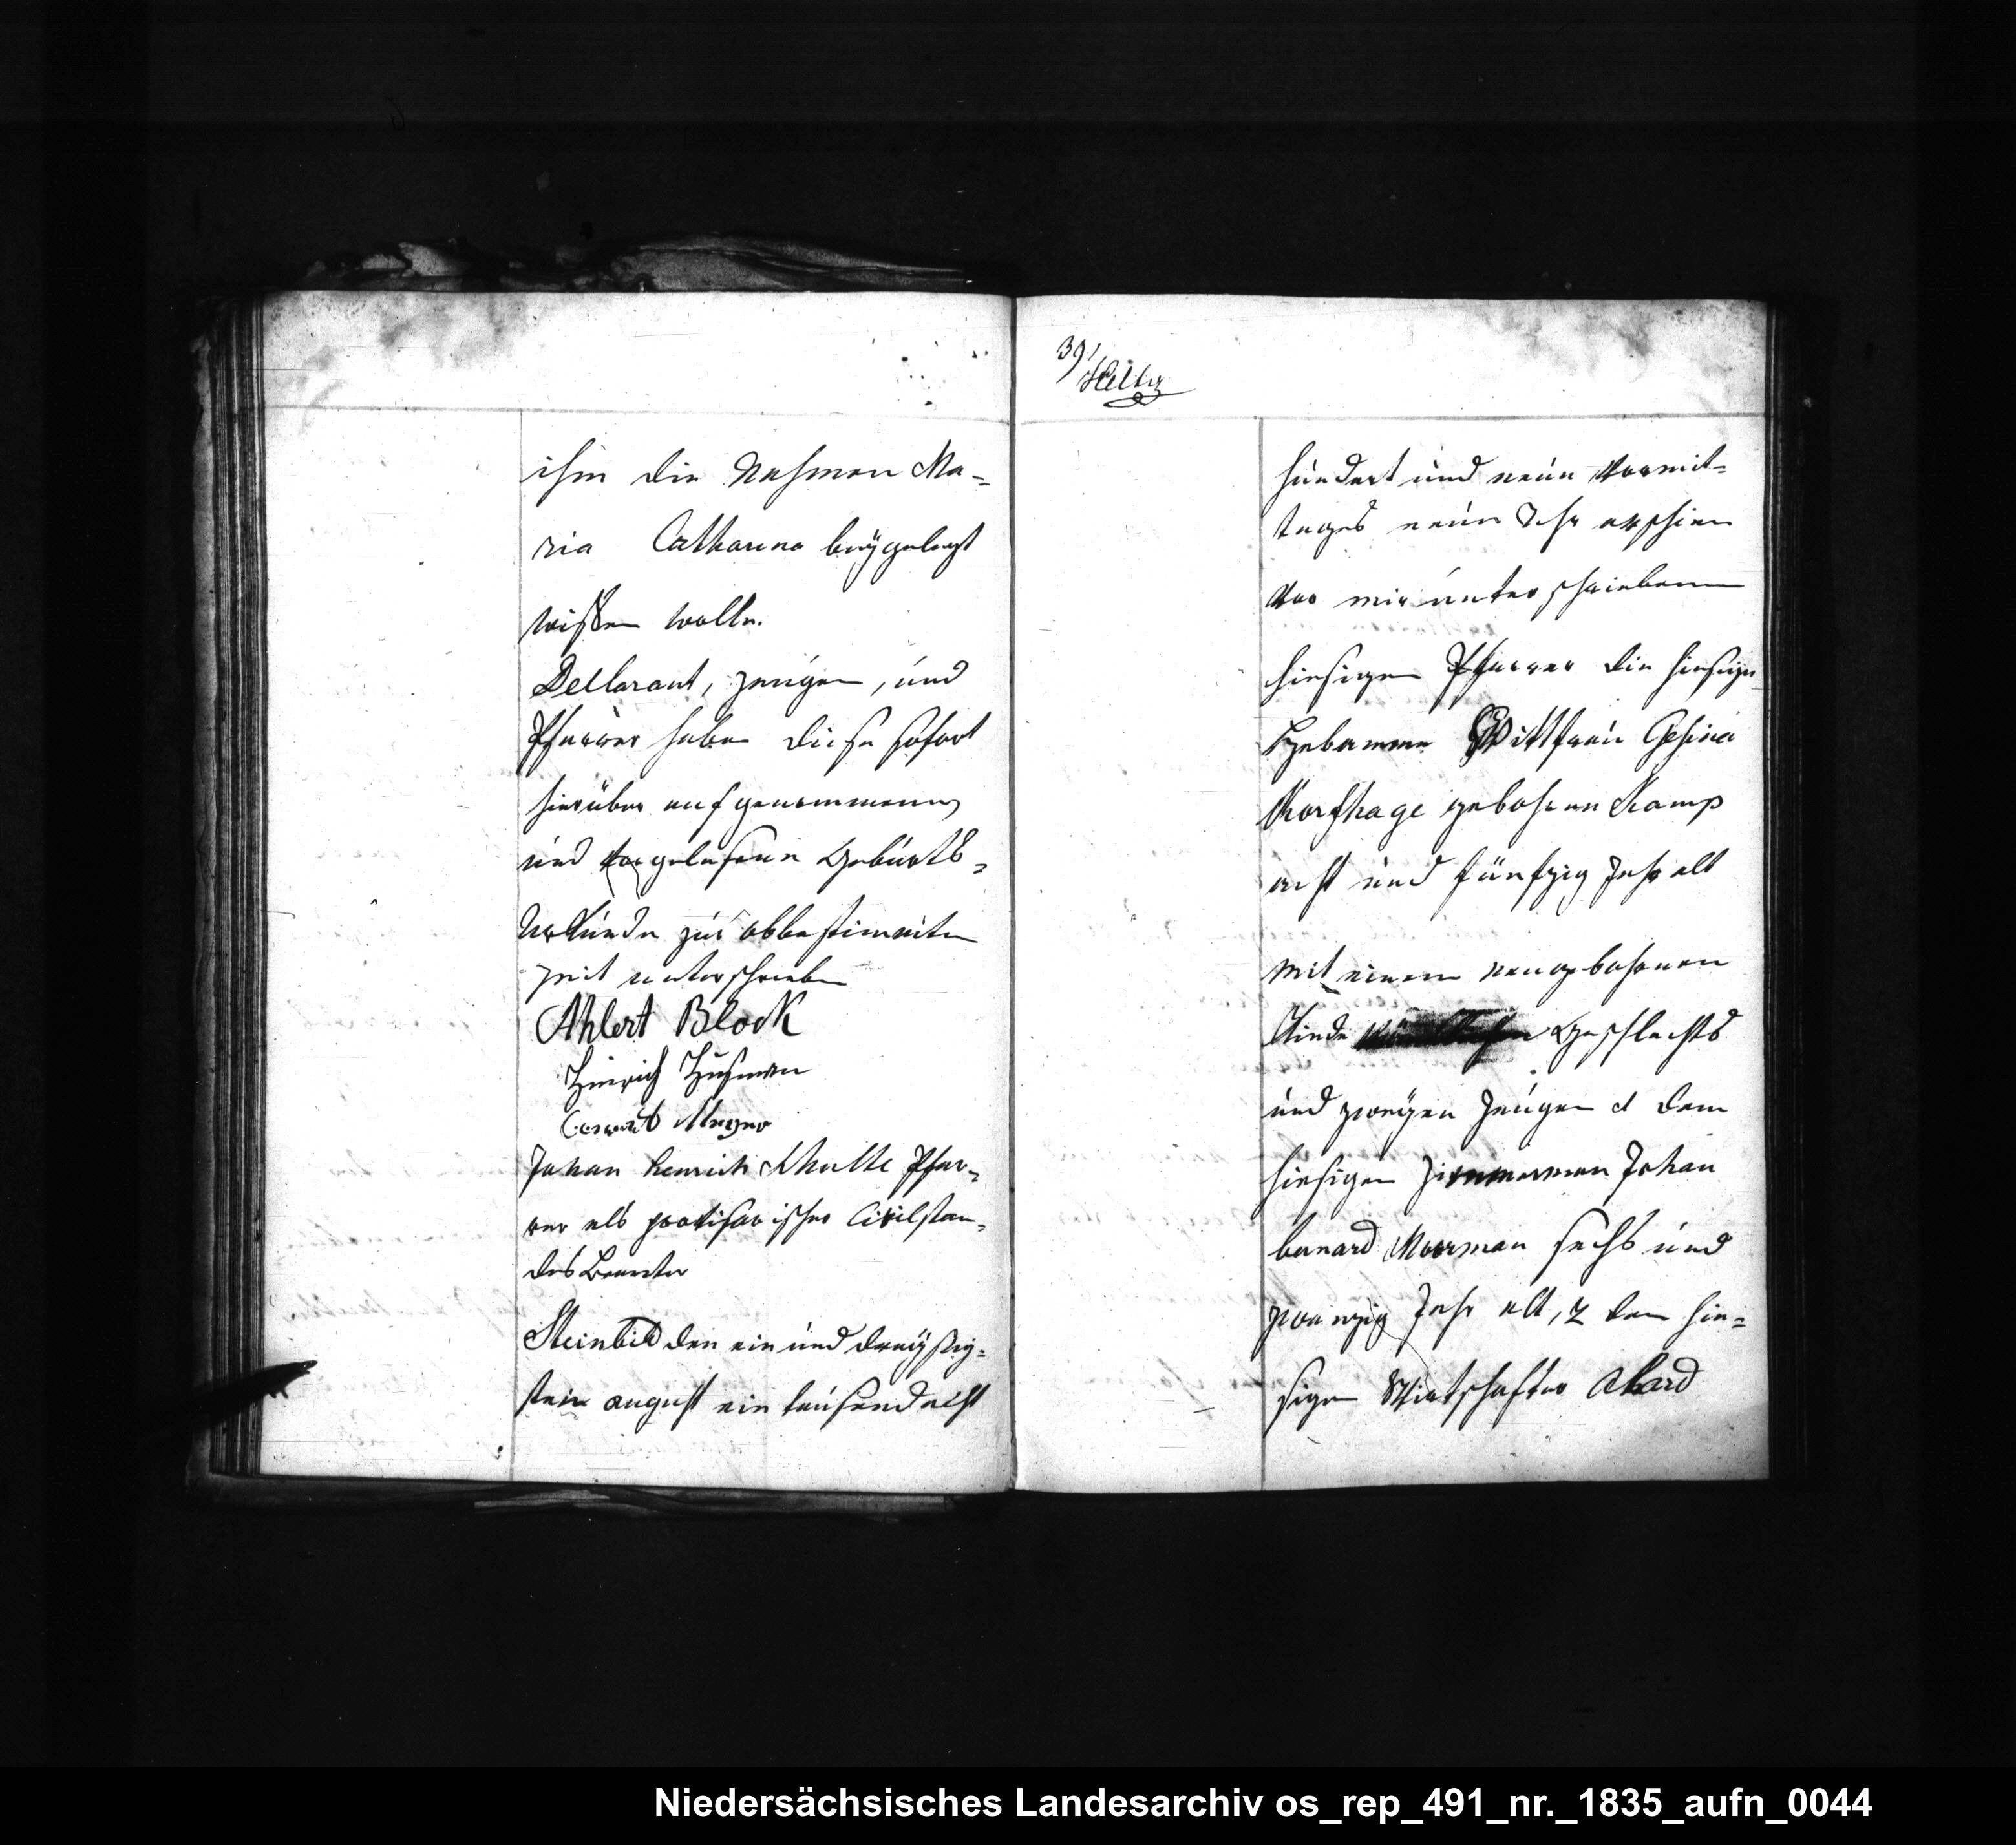 ihm die Nahmen Ma-
ria Catharina beÿgelegt
wissen wolle.
Declarant, zeugen, und
Pfarrer haben diese sofort
hierüber aufgenommene
und vorgelesene Geburts-
Urkunde zur obbestimmten
zeit unterschrieben
Ahlert Block
Hinrich Husman
Meyer
Johan henrich Schulte Pfar-
rer als provisorischer Civilstan-
des Beamter
Steinbild den ein und dreÿssig-
sten august ein tausend acht
39,
hundert und neun Vormit-
tages neun Uhr erschien
vor mir unterschriebenen
hiesigen Pfarrer die hiesige
Hebamme Wittfrau Gesina
Korfhage gebohren Kamp
acht und fünfzig Jahr alt
mit einem neugebohrenen
Kinde Geschlechts
und zweÿen Zeugen 1 dem
hiesigen Zimmerman Johan
bernard Moorman sechs und
zwanzig Jahr alt, 2 dem hie-
sigen Wirtschafter Alard
Niedersächsisches Landesarchiv os_rep_491_nr._1835_aufn_0044